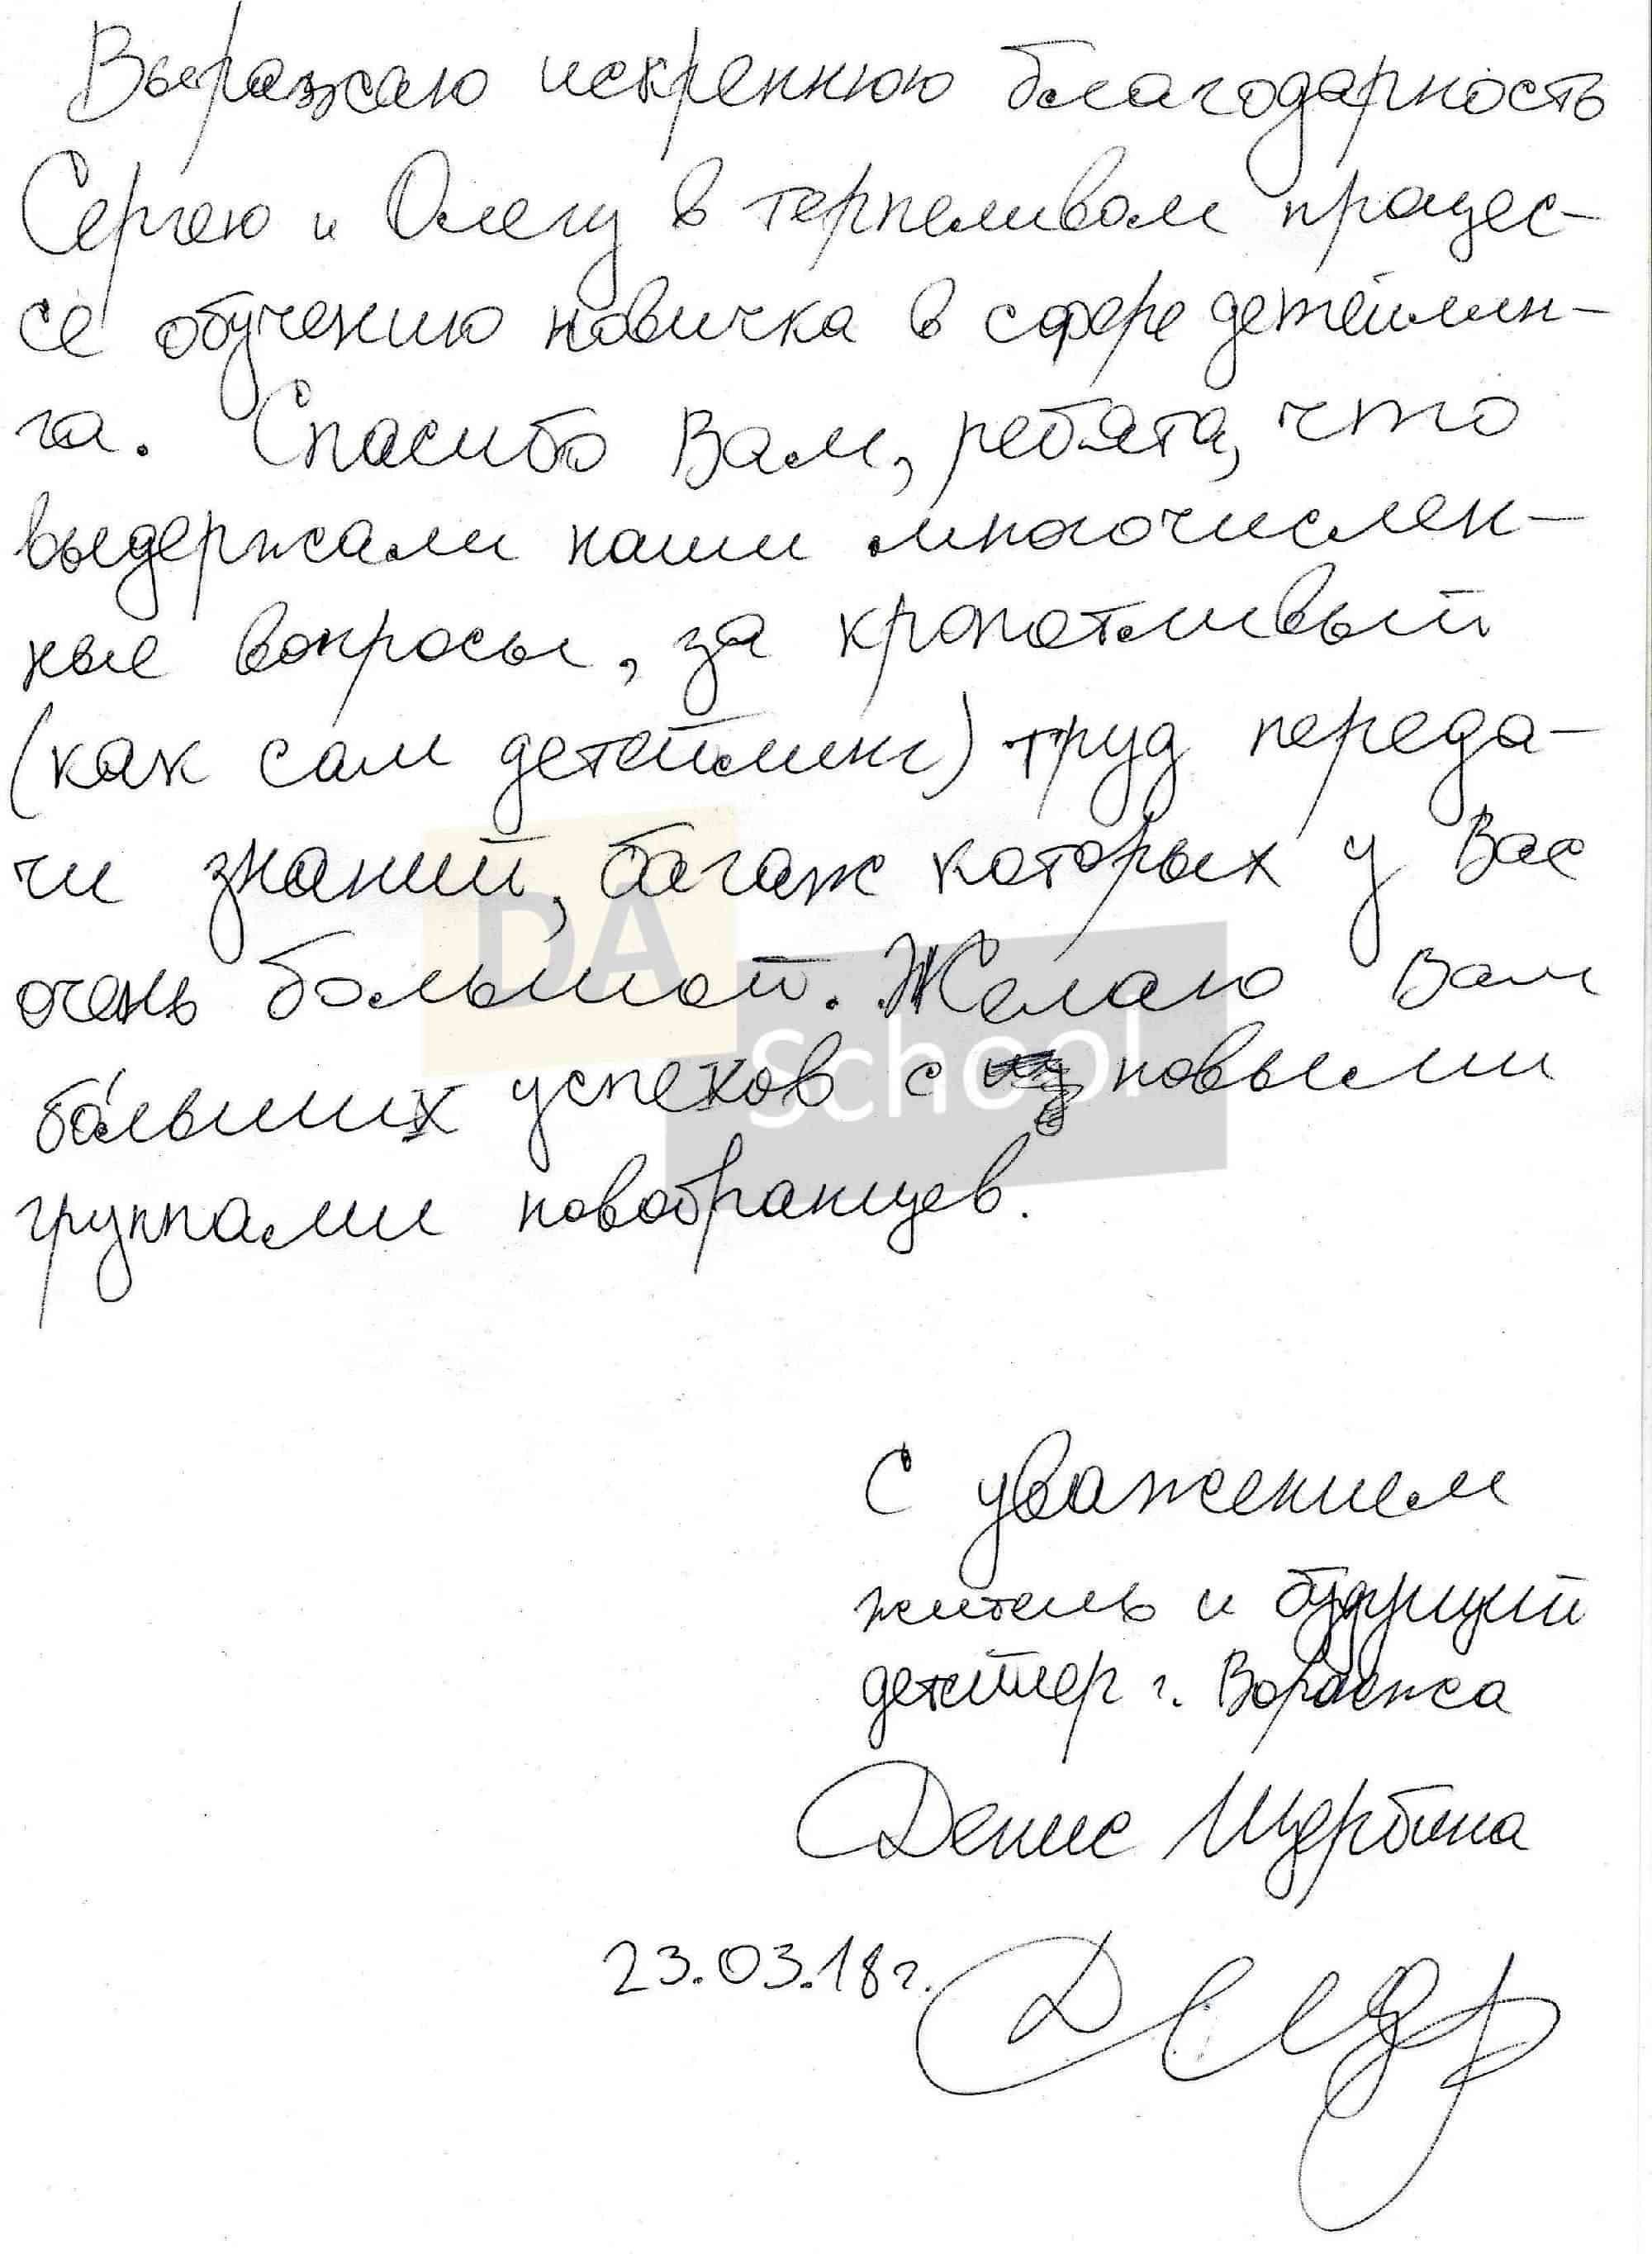 Выражаю искреннюю благодарность
Сергею и Олегу в терпеливом процес-
се обучению новичка в сфере детейлин-
га. Спасибо Вам, ребята, что
выдержали наши многочислен-
ные вопросы, за кропотливый
(как сам детейлинг) труд переда-
чи знаний, багаж которых у Вас
очень большой. Желаю Вам
бо́льших успехов с новыми
группами новобранцев.
DA
School
С уважением
житель и будущий
детейлер г. Воронежа
Денис Щербина
23.03.18г.